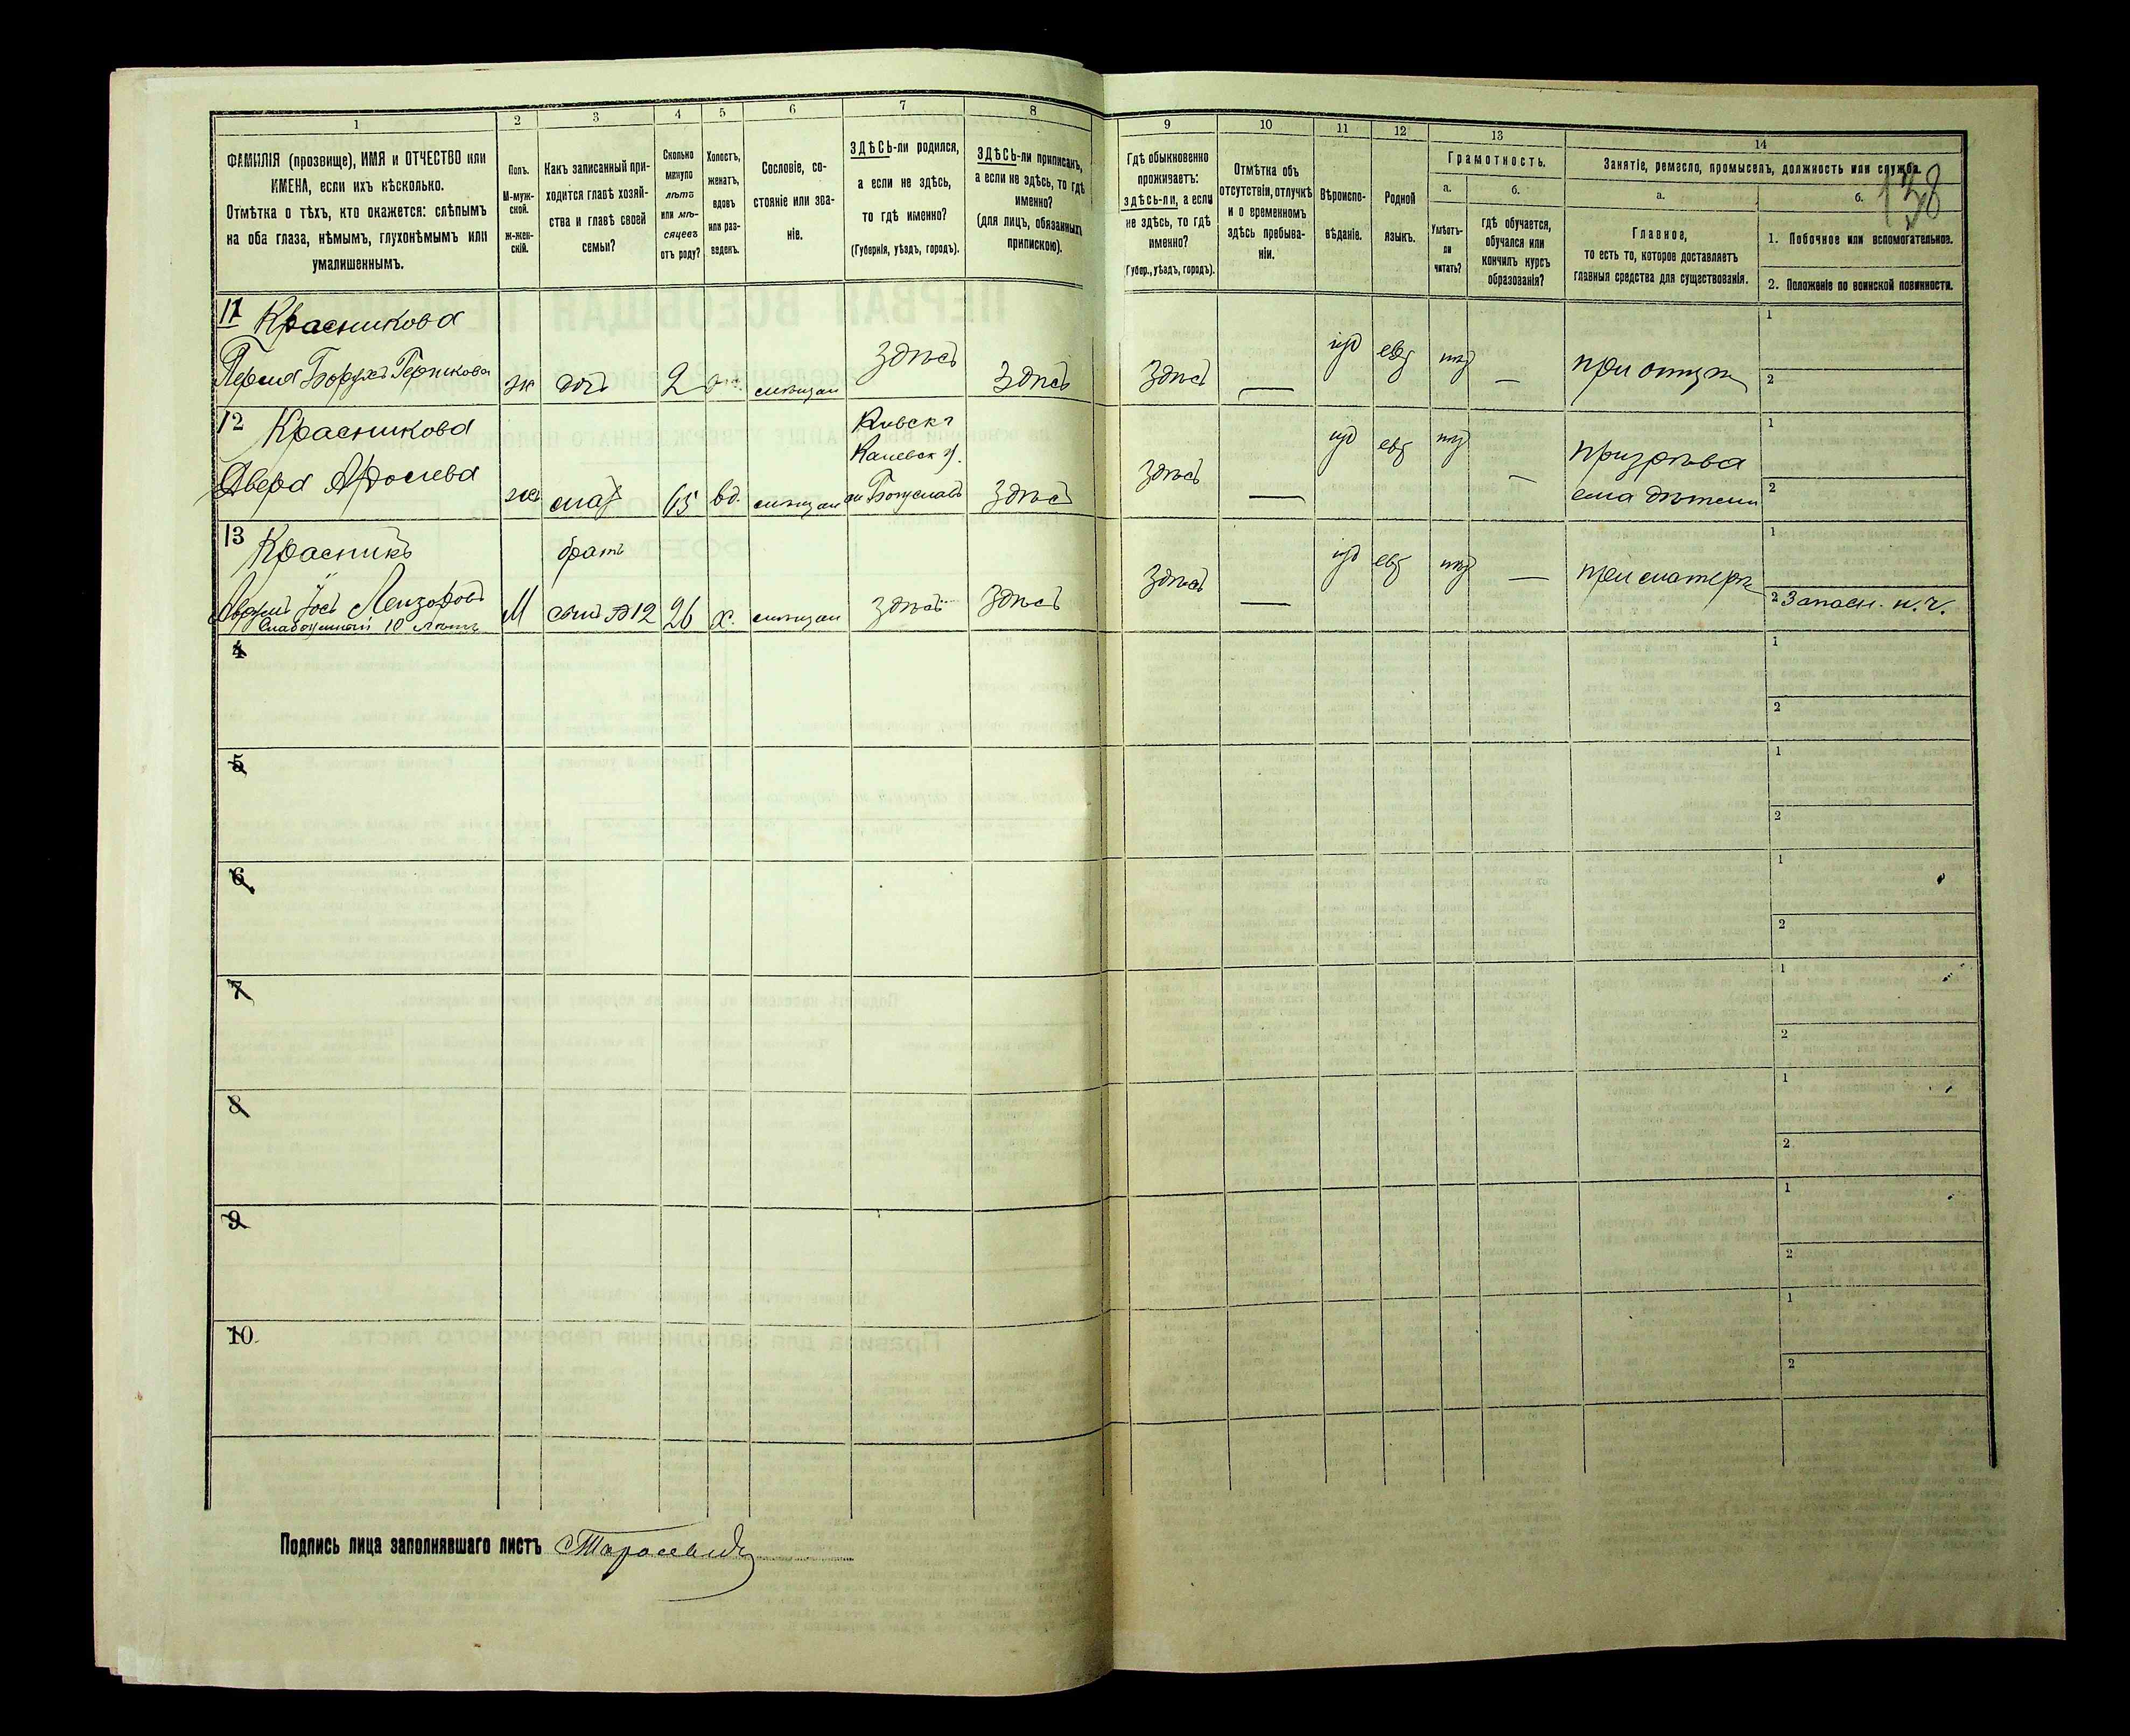 1
2
3
4
5
6
7
8
9
10
11
12
13
14
ФАМИЛІЯ (прозвище), ИМЯ и ОТЧЕСТВО или
ИМЕНА, если ихъ нѣсколько.
Отмѣтка о тѣхъ, кто окажется: слѣпымъ
на оба глаза, нѣмымъ, глухонѣмымъ или
умалишеннымъ.
Полъ.
М-муж-
ской.
ж-жен-
скій.
Какъ записанный при-
ходится главѣ хозяй-
ства и главѣ своей
семьи?
Сколько
минуло
лѣтъ
или мѣ-
сяцевъ
отъ роду?
Холостъ,
женатъ,
вдовъ
или раз-
веденъ.
Сословіе, со-
стояніе или зва-
ніе.
ЗДѢСЬ-ли родился,
а если не здѣсь,
то гдѣ именно?
(Губернія, уѣздъ, городъ).
ЗДѢСЬ-ли приписанъ,
а если не здѣсь, то гдѣ
именно?
(для лицъ, обязанныхъ
припискою).
Гдѣ обыкновенно
проживаетъ:
здѣсь-ли, а если
не здѣсь, то гдѣ
именно?
(Губер., уѣздъ, городъ).
Отмѣтка объ
отсутствіи, отлучкѣ
и о временномъ
здѣсь пребыва-
ніи.
Вѣроиспо-
вѣданіе.
Родной
языкъ.
Грамотность.
а.
Умѣетъ-
ли
читать?
б.
гдѣ обучается,
обучался или
кончилъ курсъ
образованія?
Занятіе, ремесло, промыселъ, должность или служба.
а.
Главное,
то есть то, которое доставляетъ
главныя средства для существованія.
б.
138
1. Побочное или вспомогательное.
2. Положеніе по воинской повинности.
11 Красникова
Песия Борухъ Герчикова
ж дочь 2 мѣщан здѣсь здѣсь
здѣсь — іуд евр нѣт — при отцѣ
1
2
12 Красникова
Двера
ж мать 65 вд. мѣщан
Кивск г
Каневск у.
м Богуславъ
здѣсь
здѣсь — іуд евр нѣт —
призрѣва
ема дѣтьми
1
2
13 Красникъ
Аврумъ Іось Лейзоровъ
Слабоумный 10 лѣтъ
М
братъ
сынъ №12
26 х. мѣщан здѣсь здѣсь
здѣсь — іуд евр нѣт — при матери
1
2 Запасн. н. ч.
4
1
2
5
1
2
6
1
2
7
1
2
8
1
2
9
1
2
10
1
2
Подпись лица заполнявшаго листъ Тарасевичъ